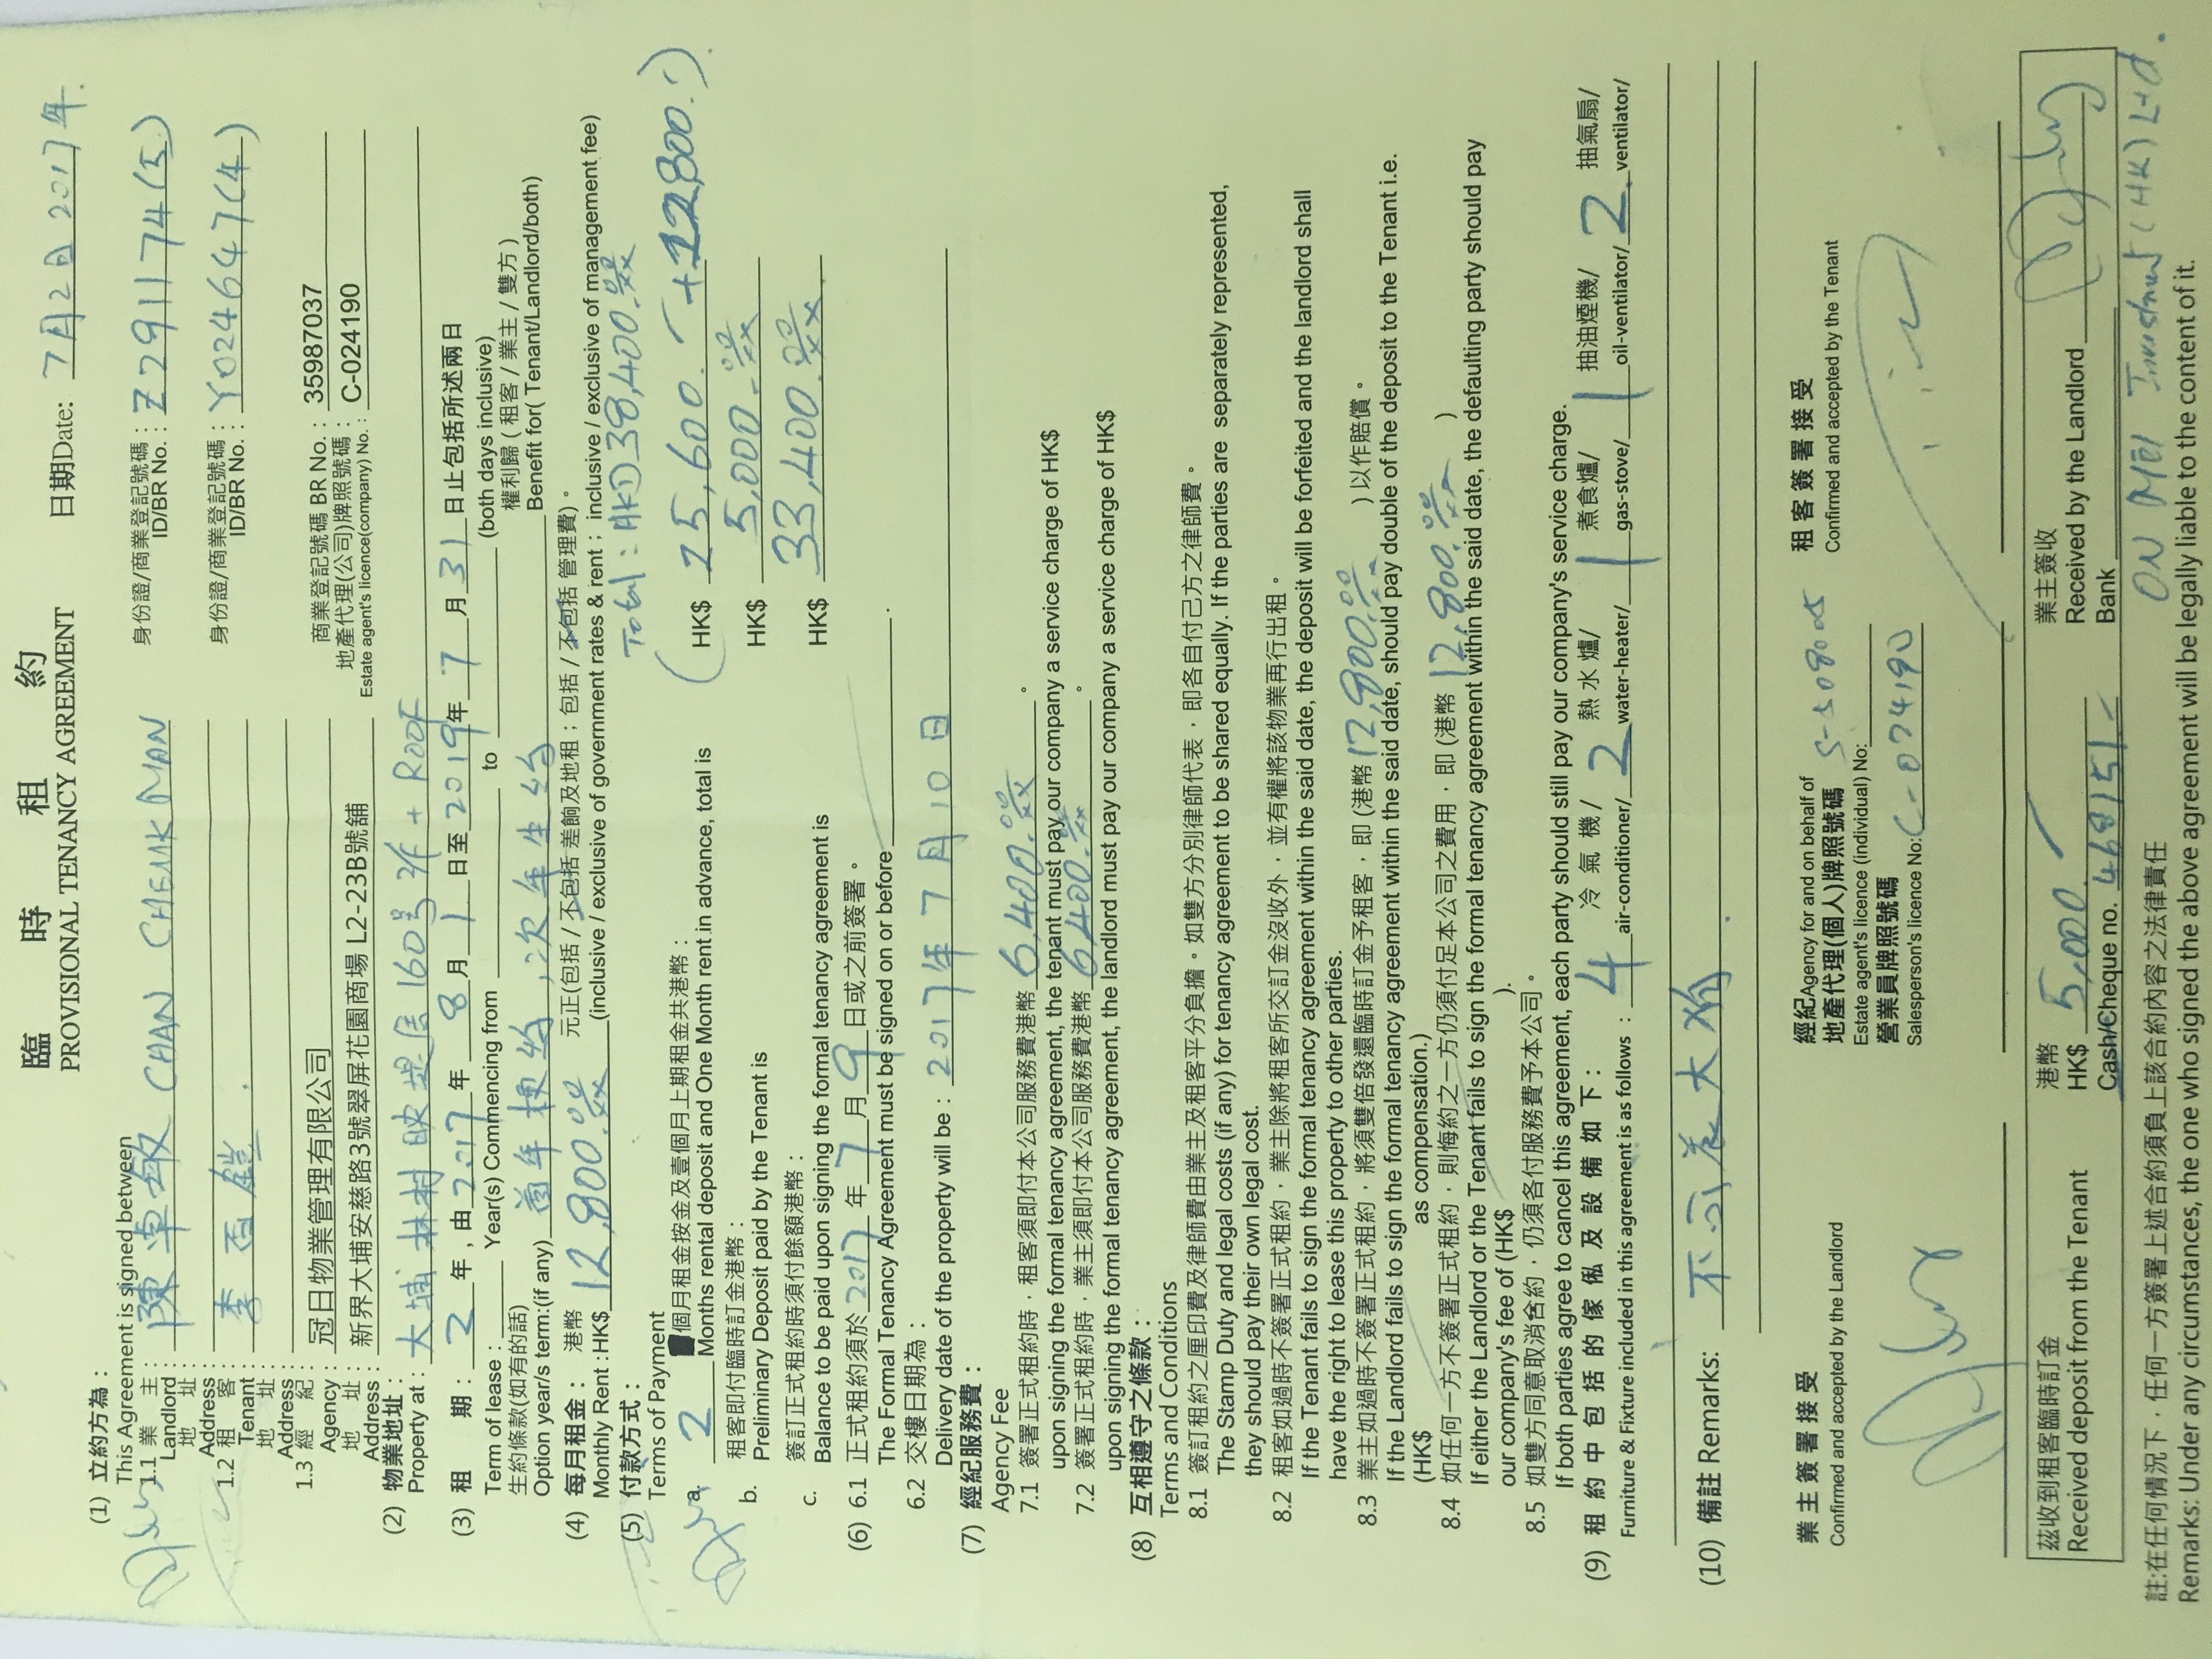 臨時租約
PROVISIONAL TENANCY AGREEMENT
日期Date: 7月2日2017年.
(1) 立約方為：
This Agreement is signed between
1.1 業主： 陳卓敏 CHAN CHEUK MAN 身份證/商業登記號碼：
Landlord: ID/BR No.: Z291174(5)
地址：
Address
1.2 租客： 李百鎧 身份證/商業登記號碼：
Tenant: ID/BR No.: Y024647(4)
地址：
Address:
1.3 經紀： 冠日物業管理有限公司 商業登記號碼 BR No.: 35987037
Agency: 地產代理(公司)牌照號碼：
地址： 新界大埔安慈路3號翠屏花園商場 L2-23B號舖 Estate agent's licence(company) No.: C-024190
Address:
(2) 物業地址： 大埔林村 160号 2/F + ROOF
Property at:
(3) 租期： 2 年，由2017年 8 月 1 日至2019年 7 月 31 日止包括所述兩日
Term of lease: Year(s) Commencing from to (both days inclusive)
生約條款(如有的話) 權利歸（租客/業主/雙方）
Option year/s term:(if any) 首年梗約,次年生約 Benefit for( Tenant/Landlord/both)
(4) 每月租金： 港幣 元正(包括/不包括 差餉及地租；包括/不包括 管理費)。
Monthly Rent :HK$ 12,800.00 (inclusive / exclusive of government rates & rent ; inclusive / exclusive of management fee)
(5) 付款方式：
Terms of Payment
Total: HKD38,400.00
a. 2 個月租金按金及壹個月上期租金共港幣：
Months rental deposit and One Month rent in advance, total is (HK$ 25,600. + 12,800.)
b. 租客即付臨時訂金港幣：
Preliminary Deposit paid by the Tenant is HK$ 5,000.00
c. 簽訂正式租約時須付餘額港幣：
Balance to be paid upon signing the formal tenancy agreement is HK$ 33,400.00
(6) 6.1 正式租約須於 2017 年 7 月 9 日或之前簽署。
The Formal Tenancy Agreement must be signed on or before
6.2 交樓日期為：
Delivery date of the property will be: 2017年7月10日
(7) 經紀服務費：
Agency Fee
7.1 簽署正式租約時，租客須即付本公司服務費港幣 6,400.00 。
upon signing the formal tenancy agreement, the tenant must pay our company a service charge of HK$
7.2 簽署正式租約時，業主須即付本公司服務費港幣 6,400.00 。
upon signing the formal tenancy agreement, the landlord must pay our company a service charge of HK$
(8) 互相遵守之條款：
Terms and Conditions
8.1 簽訂租約之厘印費及律師費由業主及租客平分負擔。如雙方分別律師代表，即各自付己方之律師費。
The Stamp Duty and legal costs (if any) for tenancy agreement to be shared equally. If the parties are separately represented,
they should pay their own legal cost.
8.2 租客如過時不簽署正式租約，業主除將租客所交訂金沒收外，並有權將該物業再行出租。
If the Tenant fails to sign the formal tenancy agreement within the said date, the deposit will be forfeited and the landlord shall
have the right to lease this property to other parties.
8.3 業主如過時不簽署正式租約，將須雙倍發還臨時訂金予租客，即 (港幣 12,800.00 ) 以作賠償。
If the Landlord fails to sign the formal tenancy agreement within the said date, should pay double of the deposit to the Tenant i.e.
(HK$ as compensation.)
8.4 如任何一方不簽署正式租約，則悔約之一方仍須付足本公司之費用，即 (港幣 12,800.00 )
If either the Landlord or the Tenant fails to sign the formal tenancy agreement within the said date, the defaulting party should pay
our company's fee of (HK$ ).
8.5 如雙方同意取消合約，仍須各付服務費予本公司。
If both parties agree to cancel this agreement, each party should still pay our company's service charge.
(9) 租約中包括的傢俬及設備如下： 冷氣機/ 熱水爐/ 煮食爐/ 抽油煙機/ 抽氣扇/
Furniture & Fixture included in this agreement is as follows : 4 air-conditioner/ 2 water-heater/ 1 gas-stove/ 1 oil-ventilator/ 2 ventilator/
(10) 備註 Remarks: 不可養大狗
業主簽署接受
Confirmed and accepted by the Landlord
經紀Agency for and on behalf of
地產代理(個人)牌照號碼
Estate agent's licence (individual) No:
營業員牌照號碼
Salesperson's licence No: C-024190
租客簽署接受
Confirmed and accepted by the Tenant
茲收到租客臨時訂金 港幣 業主簽收
Received deposit from the Tenant HK$ 5,000. Received by the Landlord
Cash/Cheque no. 468151 Bank
ON MEI Investment (HK) Ltd.
註:在任何情況下，任何一方簽署上述合約須負上該合約內容之法律責任
Remarks: Under any circumstances, the one who signed the above agreement will be legally liable to the content of it.